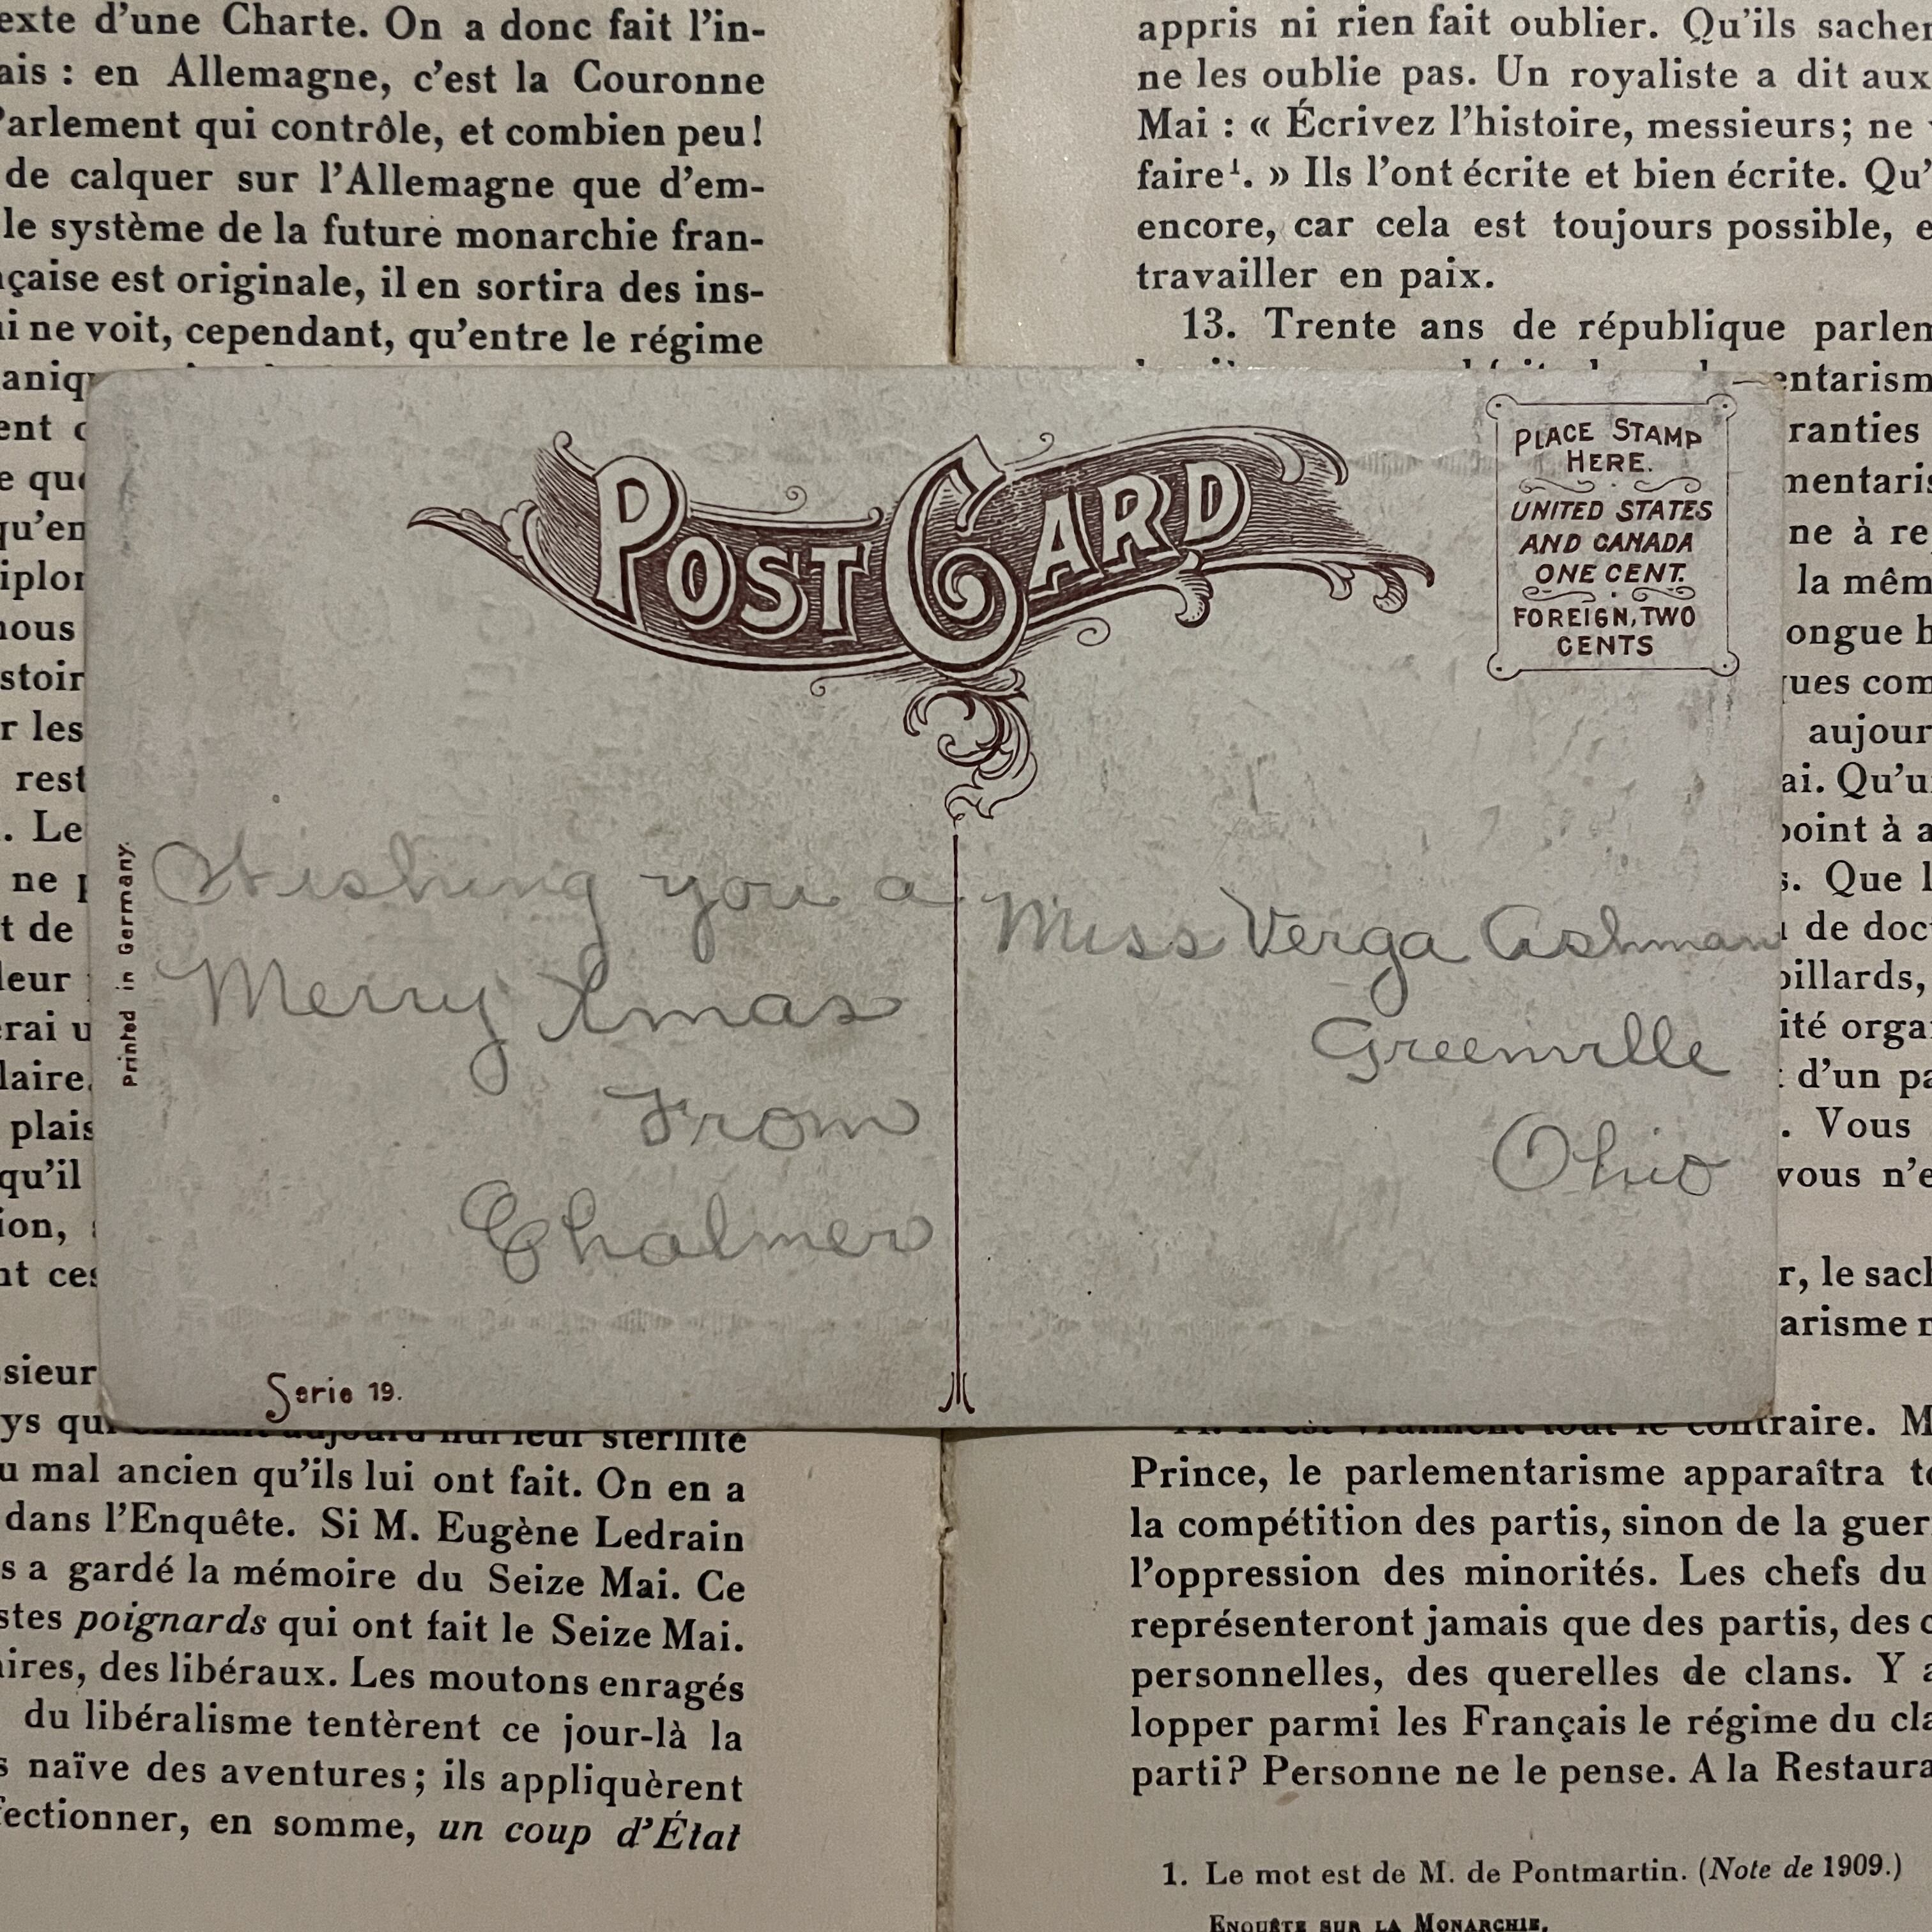 exte d'une Charte. On a donc fait l'in-
ais : en Allemagne, c'est la Couronne
Parlement qui contrôle, et combien peu!
de calquer sur l'Allemagne que d'em-
le système de la future monarchie fran-
çaise est originale, il en sortira des ins-
ui ne voit, cependant, qu'entre le régime
aniq
ent
e que
qu'en
iplor
nous
stoir
r les
rest
. Le
ne
t de
leur
erai u
laire.
plais
qu'il
ion,
nt ces
ssieur
ys qu
aujourd'hui leur stérilité
u mal ancien qu'ils lui ont fait. On en a
dans l'Enquête. Si M. Eugène Ledrain
s a gardé la mémoire du Seize Mai. Ce
stes poignards qui ont fait le Seize Mai.
aires, des libéraux. Les moutons enragés
du libéralisme tentèrent ce jour-là la
s naïve des aventures; ils appliquèrent
fectionner, en somme, un coup d'État
POST CARD
PLACE STAMP
HERE.
UNITED STATES
AND CANADA
ONE CENT.
FOREIGN, TWO
CENTS
Printed in Germany.
Wishing you a
Merry Xmas
From
Chalmer
Miss Verga Ashman
Greenville
Ohio
Serie 19.
appris ni rien fait oublier. Qu'ils sachen
ne les oublie pas. Un royaliste a dit aux
Mai : « Écrivez l'histoire, messieurs; ne
faire¹. » Ils l'ont écrite et bien écrite. Qu'
encore, car cela est toujours possible, e
travailler en paix.
13. Trente ans de république parlem
entarism
ranties
mentaris
ne à re
la mêm
ongue h
ques com
aujour
ai. Qu'u
point à a
s. Que l
de doc
billards,
ité orga
d'un pa
. Vous
vous n'e
r, le sach
arisme
contraire. M
Prince, le parlementarisme apparaîtra to
la compétition des partis, sinon de la guer
l'oppression des minorités. Les chefs du
représenteront jamais que des partis, des c
personnelles, des querelles de clans. Y a
lopper parmi les Français le régime du cla
parti? Personne ne le pense. A la Restaura
1. Le mot est de M. de Pontmartin. (Note de 1909.)
ENQUÊTE SUR LA MONARCHIE.